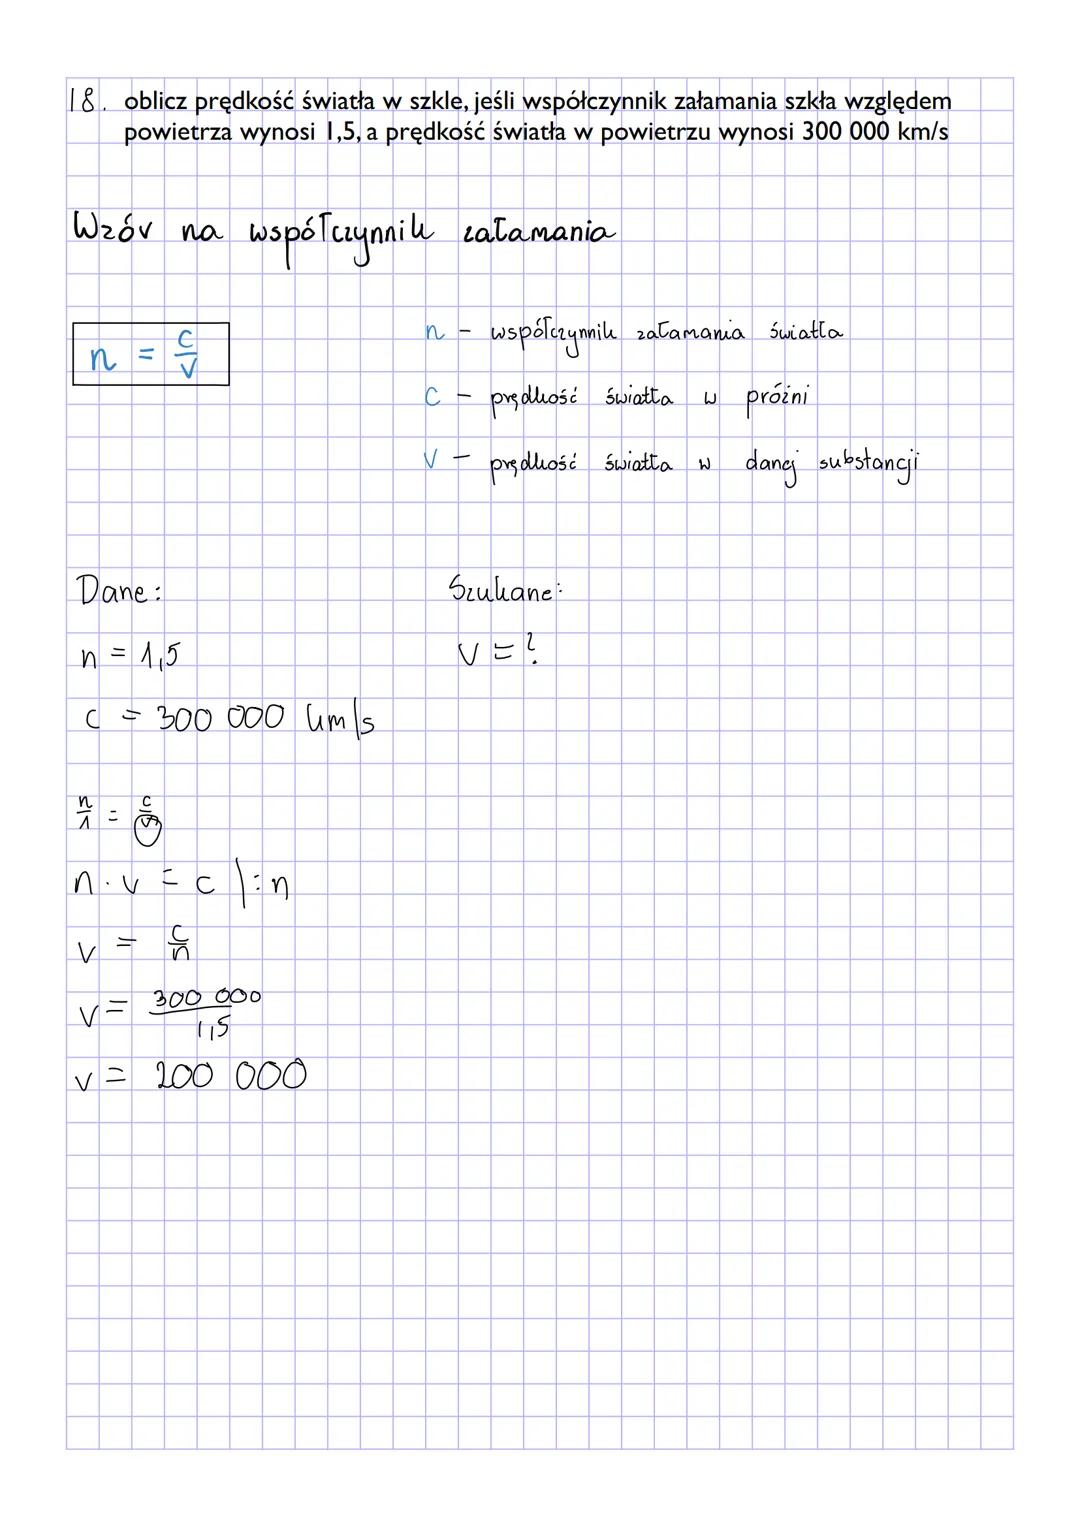 18. oblicz prędkość światła w szkle, jeśli współczynnik załamania szkła względem
powietrza wynosi 1,5, a prędkość światła w powietrzu wynosi 300 000 km/s
Wzór na współczynnik załamania
n = c/v
n - współczynnik załamania światła
c - prędkość światła w próżni
v - prędkość światła w danej substancji
Dane:
Szukane:
n = 1,5
v = ?
c = 300 000 km/s
n/1 = c/v
n · v = c |:n
v = c/n
v = 300 000/1,5
v = 200 000